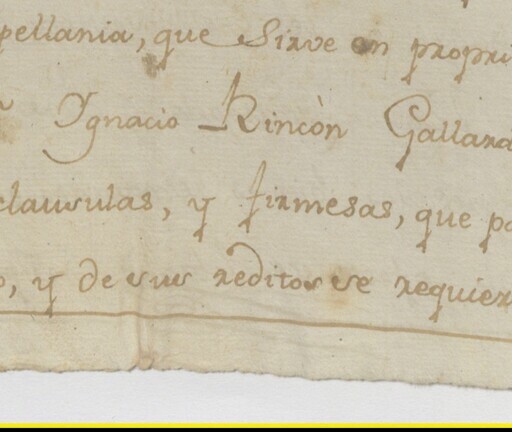 pellania, que Sirve en propri
Ygnacio Rincòn Gallard
clausulas, y firmesas, que pa
o, y de sus reditos se requier